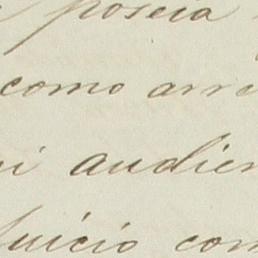 poseia
como arre
ni audien
Juicio com